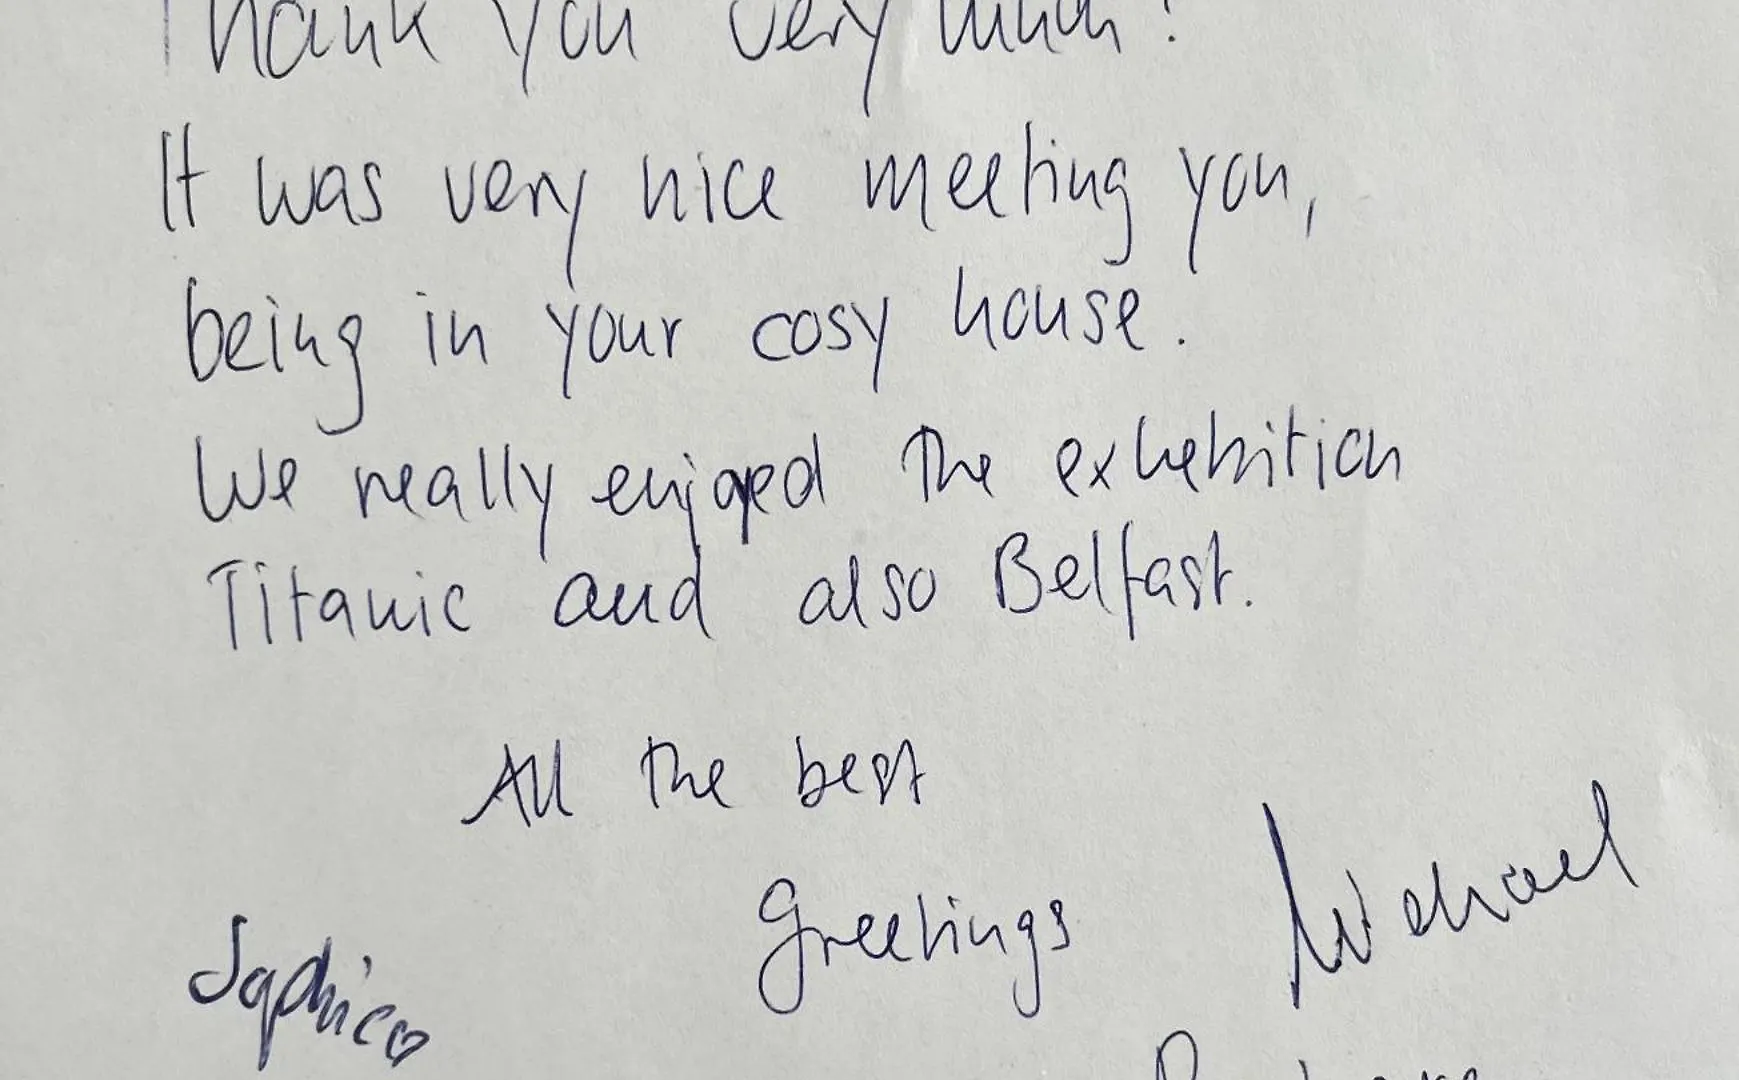 Thank you very much!
It was very nice meeting you,
being in your cosy house.
We really enjoyed the exhebition
Titanic and also Belfast.
All the best
Greetings Michael
Sophie♡